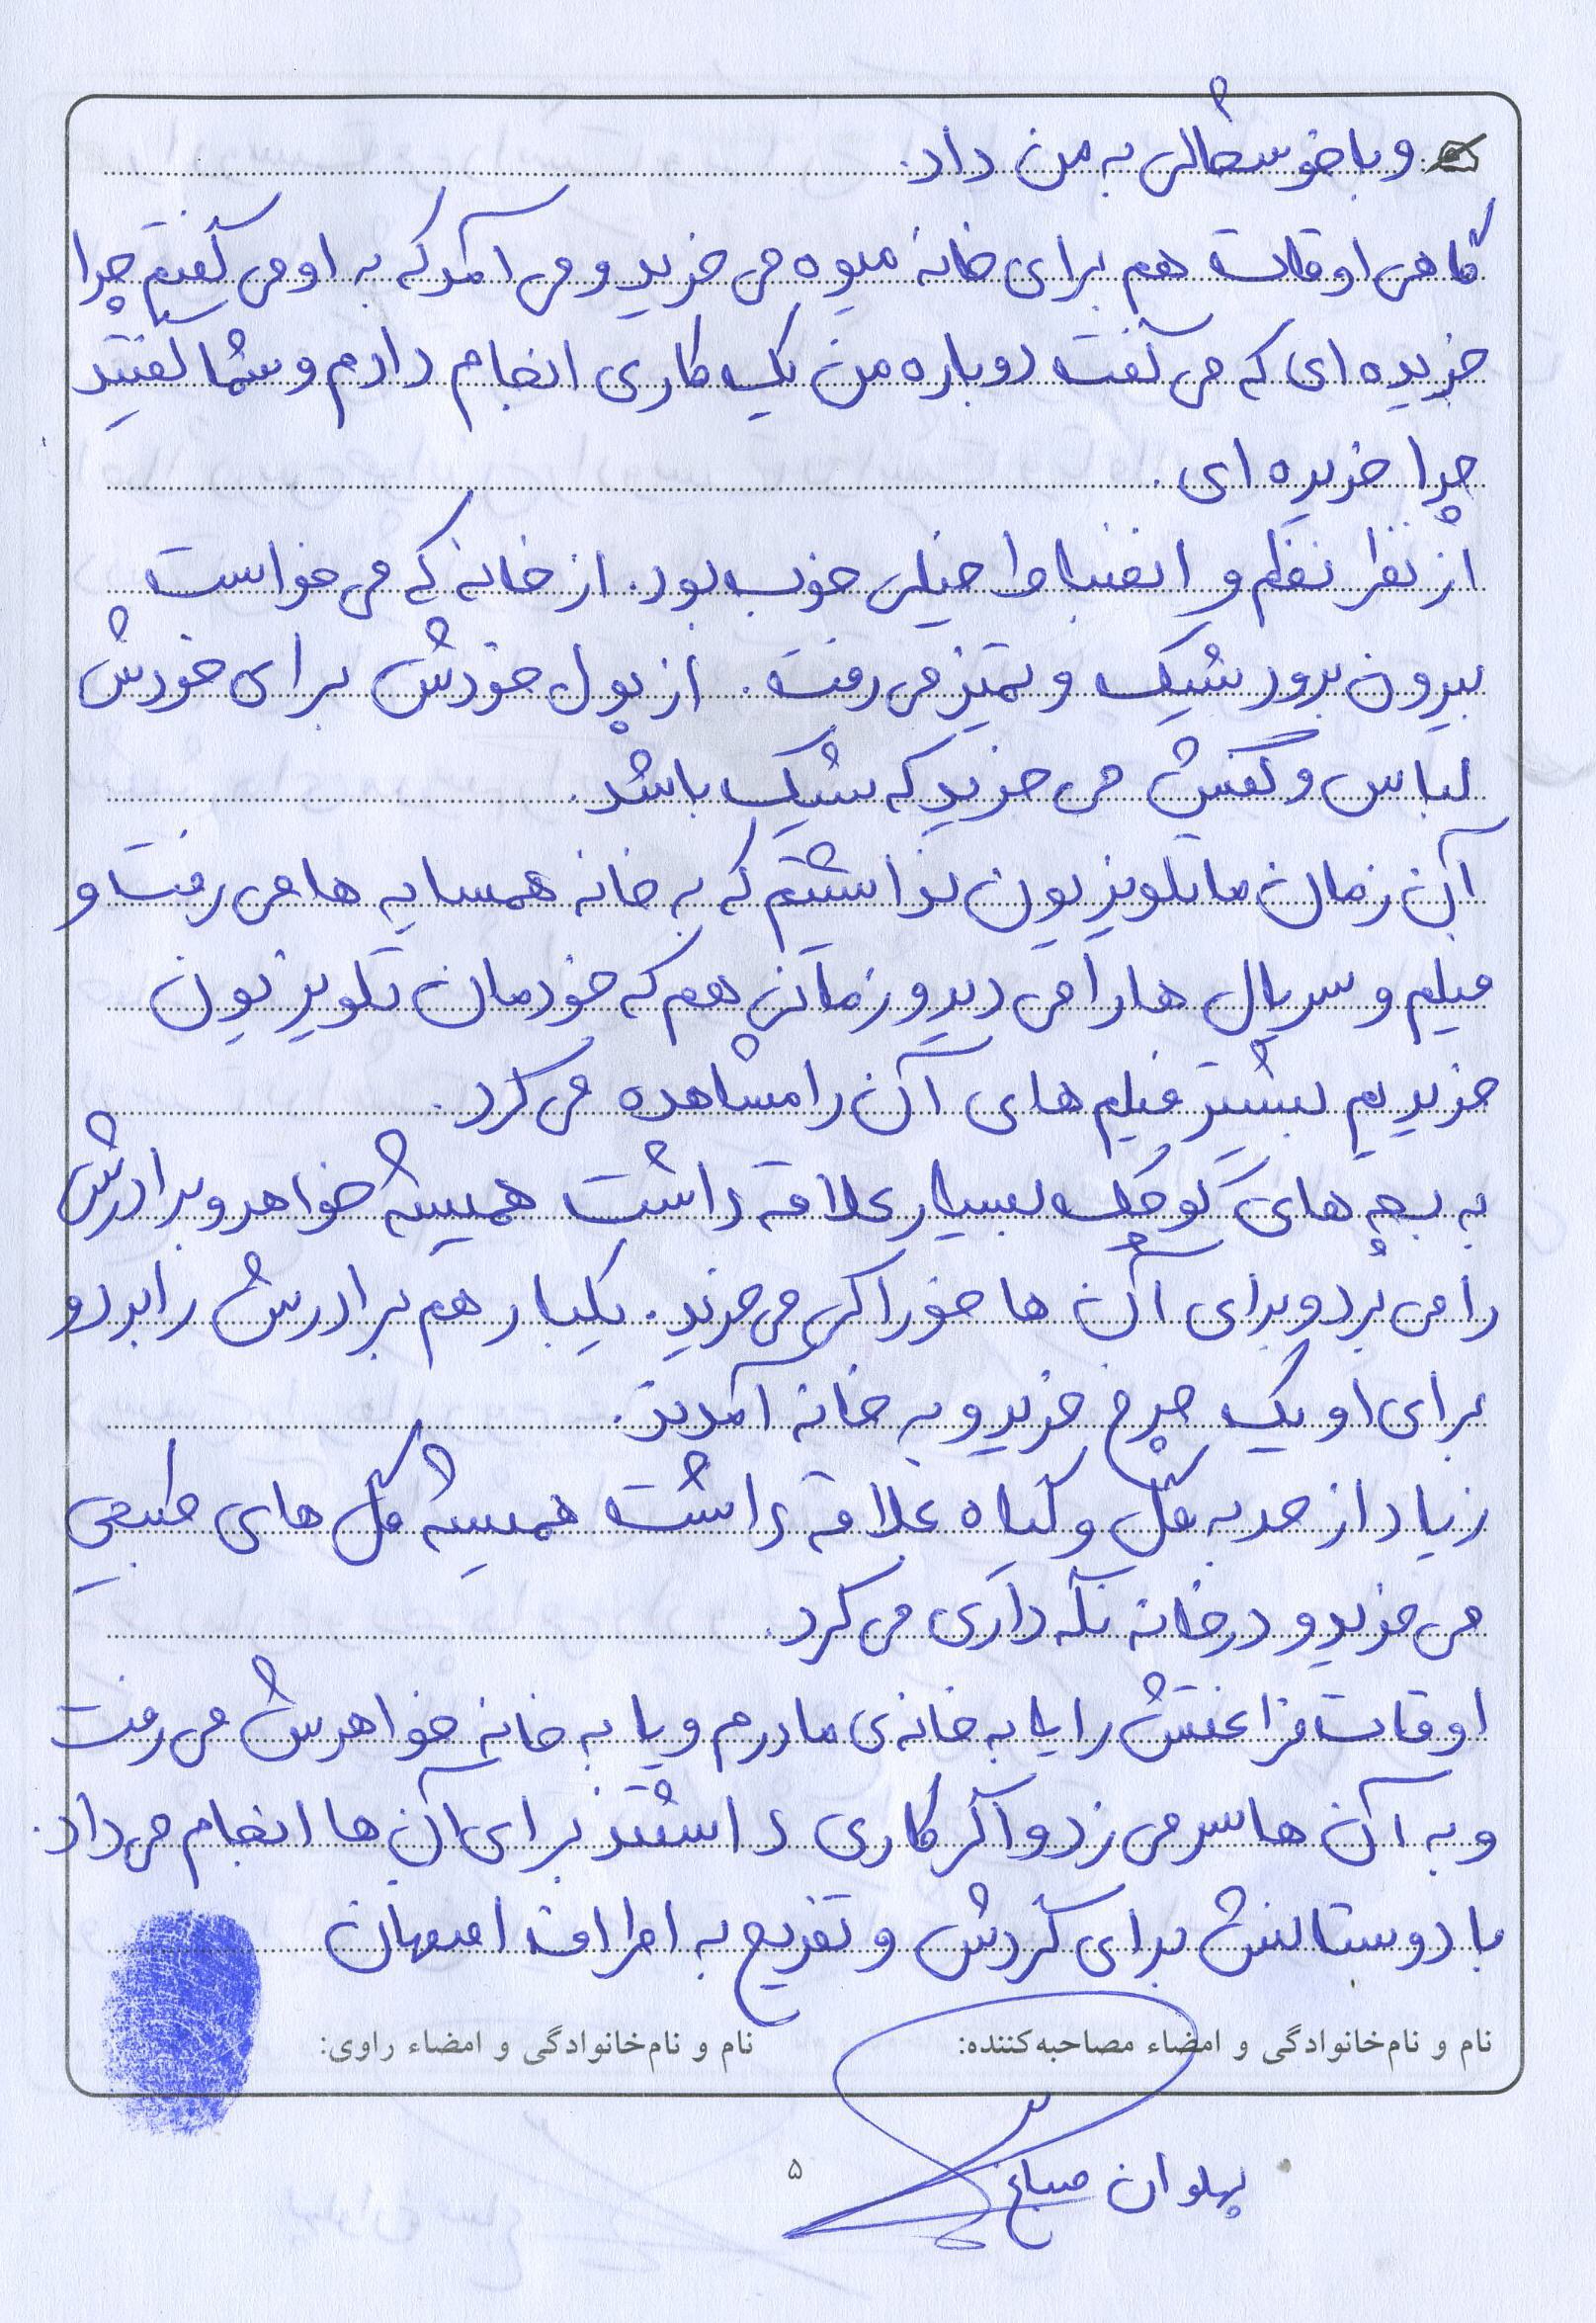 و با خوشحالی به من داد.
گاهی اوقات هم برای خانه میوه می خرید و می آمد که به او می گفتیم چرا
خریده ای که می گفت دوباره من یک کاری انجام دادم و شما گفتید
چرا خریده ای.
از نظر نظم و انضباط خیلی خوب بود. از خانه که می خواست
بیرون برود شیک و تمیز می رفت. از پول خودش برای خودش
لباس و کفش می خرید که شیک باشد.
آن زمان ما تلویزیون نداشتیم که به خانه همسایه ها می رفت و
فیلم و سریال ها را می دید و زمانی هم که خودمان تلویزیون
خریدیم بیشتر فیلم های آن را مشاهده می کرد.
به بچه های کوچک بسیار علاقه داشت همیشه خواهر و برادرش
را می برد و برای آن ها خوراکی می خرید. یکبار هم برادرش را برد و
برای او یک چرخ خرید و به خانه آمدند.
زیاد از حد به گل و گیاه علاقه داشت همیشه گل های طبیعی
می خرید و در خانه نگه داری می کرد.
اوقات فراغتش را یا به خانه ی مادرم و یا به خانه خواهرش می رفت
و به آن ها سر می زد و اگر کاری داشتند برای آن ها انجام می داد.
با دوستانش برای گردش و تفریح به اطراف اصفهان
نام و نام‌خانوادگی و امضاء مصاحبه‌کننده:
نام و نام‌خانوادگی و امضاء راوی:
پهلوان صباغ
۵